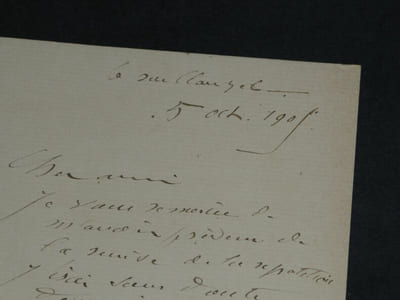 6 rue Clauzel
5 oct. 1905
Cher ami
Je vous remercie de
m'avoir prévenu de
la remise de la répétition
J'irai sans doute